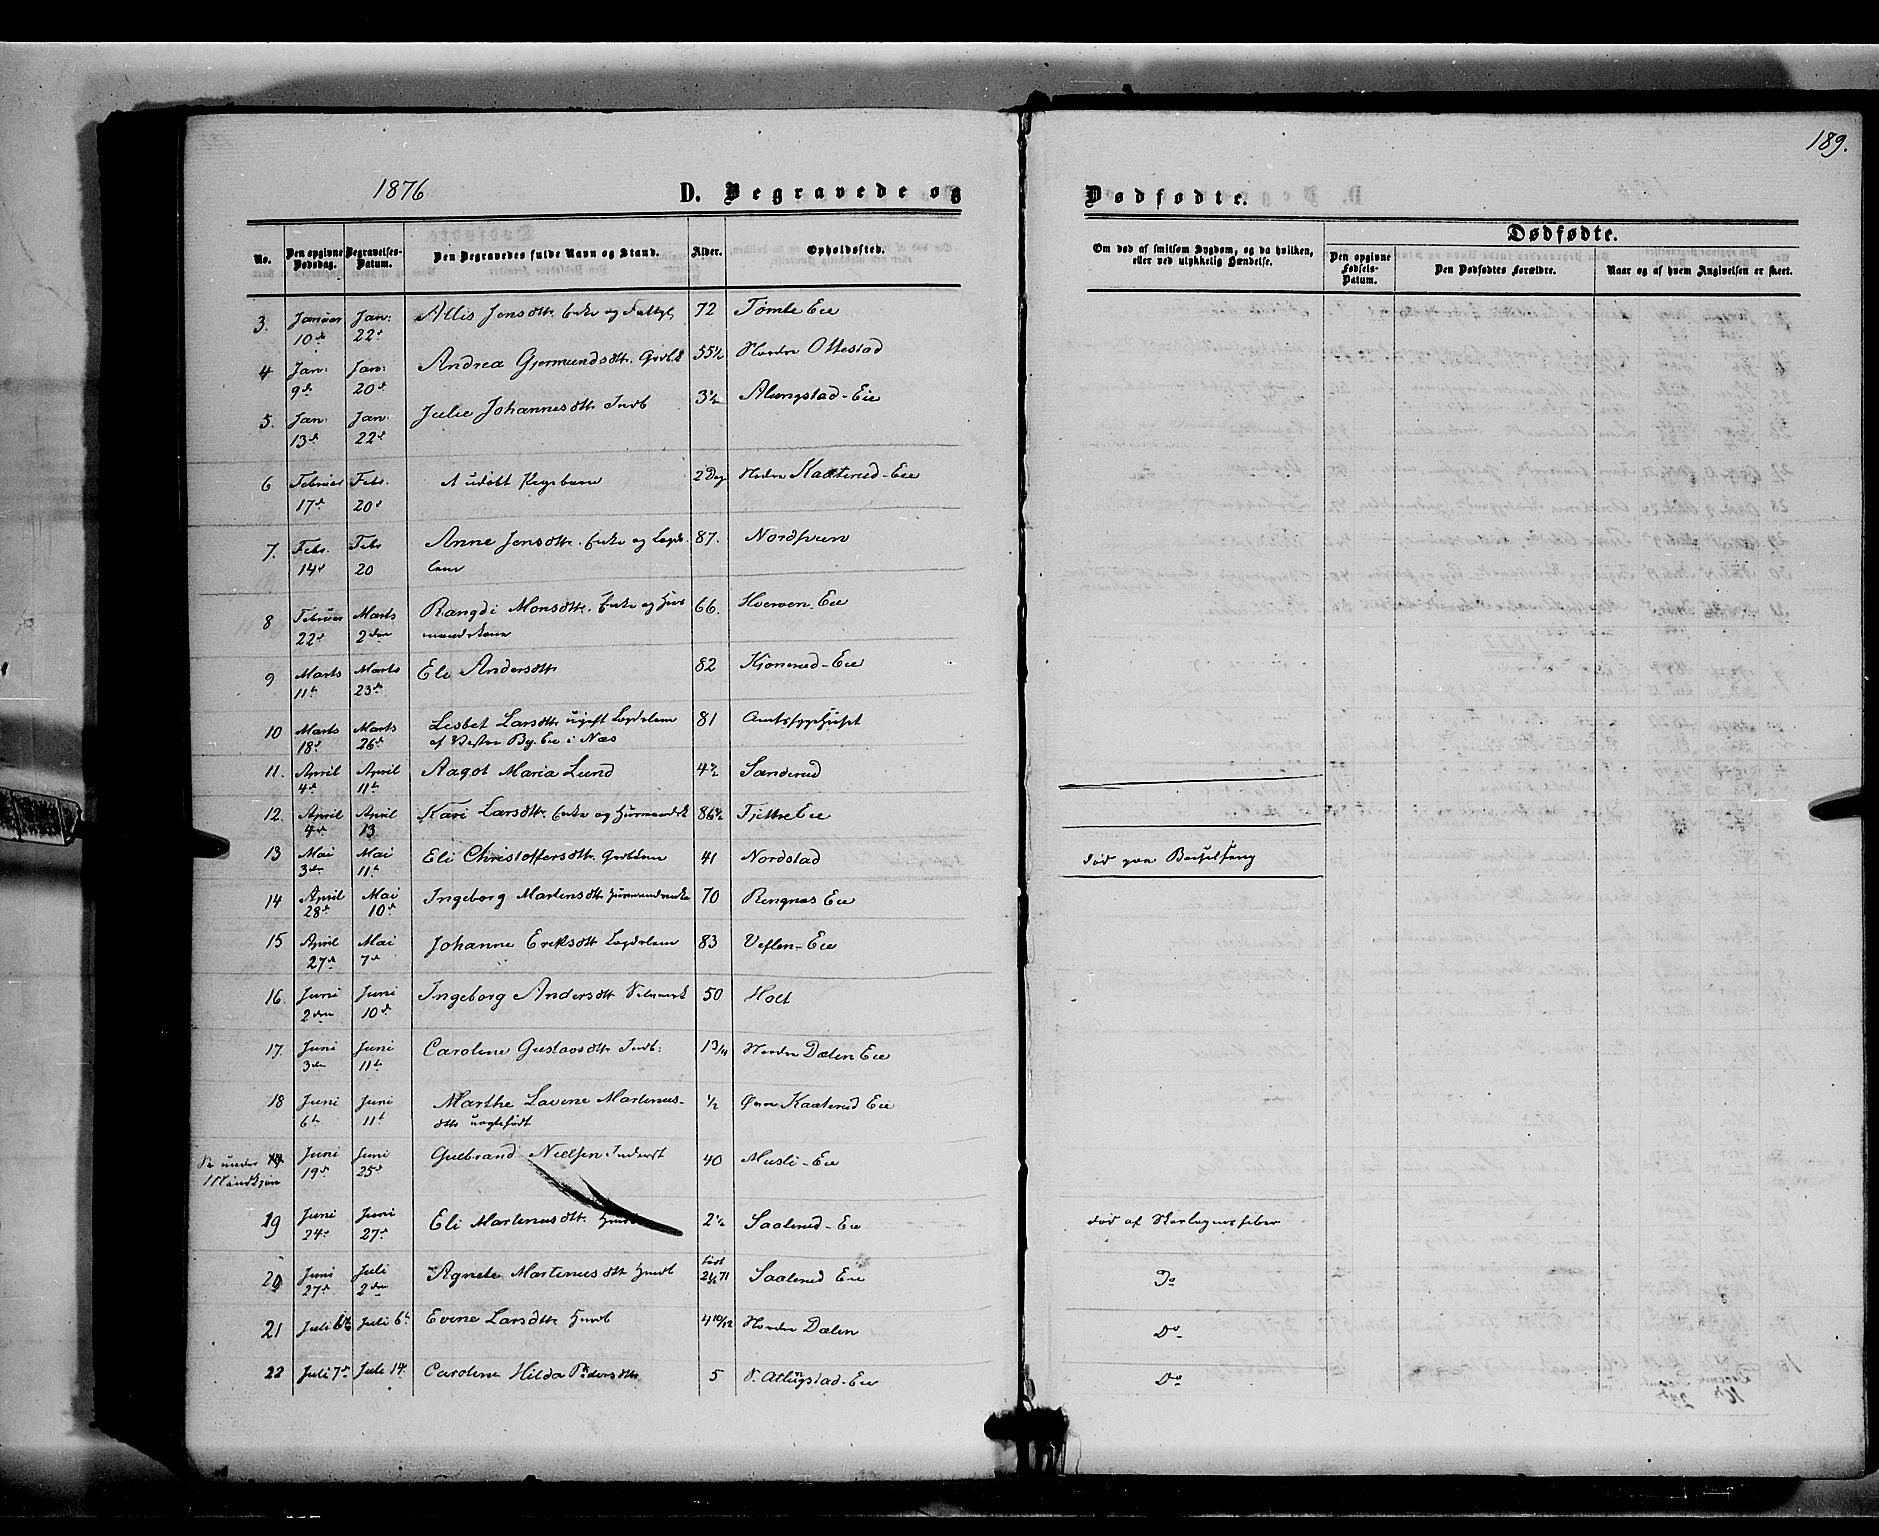 189.
1876
D. Begravede og Dødfødte.
No.
Den opgivne Dødsdag.
Begravelses-Datum.
Den Begravedes fulde Navn og Stand.
Alder.
Opholdssted.
Om død af smitsom Sygdom, og da hvilken, eller ved ulykkelig Hændelse.
Dødfødte.
Den opgivne Fødsels-Datum.
Den Dødfødtes Forældre.
Naar og af hvem Angivelsen er skeet.
3. Januar 10de Jan: 22de Allis Jensdtr. Enke og 72 Tømte Eie
4 Jan: 9de Jan: 20de Andrea Gjermundsdtr. 55½ Nordre Ottestad
5. Jan: 13de Jan: 22de Julie Johannesdtr. Indb 3½ Alungstad-Eie
6 Februar 17de Febr. 20de udøbt Pigebarn 2 Dag Nedre Kaaterud-Eie
7. Febr. 14de Febr 20 Anne Jensdtr. Enke og Lægds- 87. Nordhven
lem
8 Februar 22de Marts 2den Rangdi Monsdtr. Enke og Huus 66. Hverven-Eie
mandskone
9 Marts 11te Marts 23de Eli Andersdtr 82 Kjonerud-Eie
10 Marts 18de Marts 26de Lisbet Larsdtr. ugift Lægdslem 81 Amtssygehuset
af Vestre By Eie i Næs
11. April 4de April 11te Aagot Maria Lund Sanderud
12. April 4de April 13 Kari Larsdtr. Enke og Huusmandsk 86½ Tjettre Eie
13 Mai 3die Mai 11te Eli Christoffersdtr. 41 Nordstad død paa Barselseng
14 April 28de Mai 10de Ingeborg Martensdtr Huusmandsenke 70 Ringnæs Eie
15 April 27de Mai 7de Johanne Eriksdtr Lægdslem 83 Veflen-Eie
16. Juni 2den Juni 10de Ingeborg Andersdtr 50 Holt
17. Juni 3die Juni 11te Caroline Gustavsdtr Indb: Nordre Dælen Eie
18 Juni 6te Juni 11te Marthe Lovine Martinus- ½ Øvre Kaaterud Eie
dtr uægtefødt
Se under Mandkjøn Juni 19de Juni 25de Gulbrand Nielsen Inderst 40 Musli-Eie
19 Juni 24de Juni 27de Eli Martinusdtr. 2½ Saaterud-Eie død af Skarlagensfeber
20 Juni 27de Juli 2den Agnete Martinusdtr født 71 Saaterud Eie Do
21 Juli 6te Juli 6te Evine Larsdtr 4 10/12 Nordre Dælen Do
22 Juli 7de Juli 14. Caroline Hilda Pedersdtr 5 N. Atlugstad-Eie Do